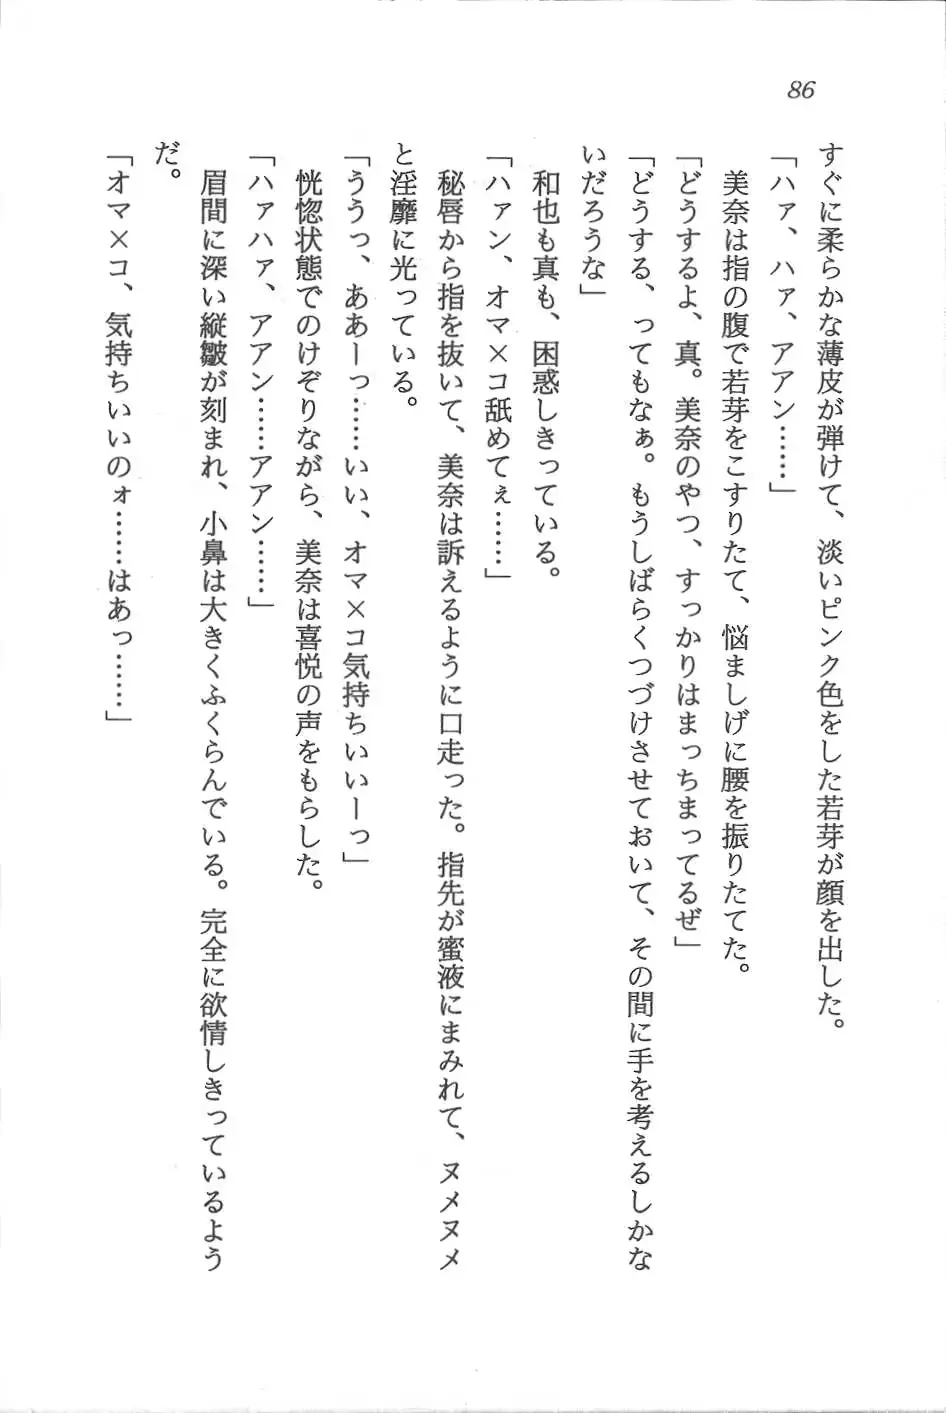 86
すぐに柔らかな薄皮が弾けて、淡いピンク色をした若芽が顔を出した。
「ハァ、ハァ、アアン……」
美奈は指の腹で若芽をこすりたて、悩ましげに腰を振りたてた。
「どうするよ、真。美奈のやつ、すっかりはまっちまってるぜ」
「どうする、ってもなぁ。もうしばらくつづけさせておいて、その間に手を考えるしかな
いだろうな」
和也も真も、困惑しきっている。
「ハァン、オマ×コ舐めてぇ……」
秘唇から指を抜いて、美奈は訴えるように口走った。指先が蜜液にまみれて、ヌメヌメ
と淫靡に光っている。
「ううっ、ああーっ……いい、オマ×コ気持ちいいーっ」
恍惚状態でのけぞりながら、美奈は喜悦の声をもらした。
「ハァハァ、アアン……アアン……」
眉間に深い縦皺が刻まれ、小鼻は大きくふくらんでいる。完全に欲情しきっているよう
だ。
「オマ×コ、気持ちいいのォ……はあっ……」